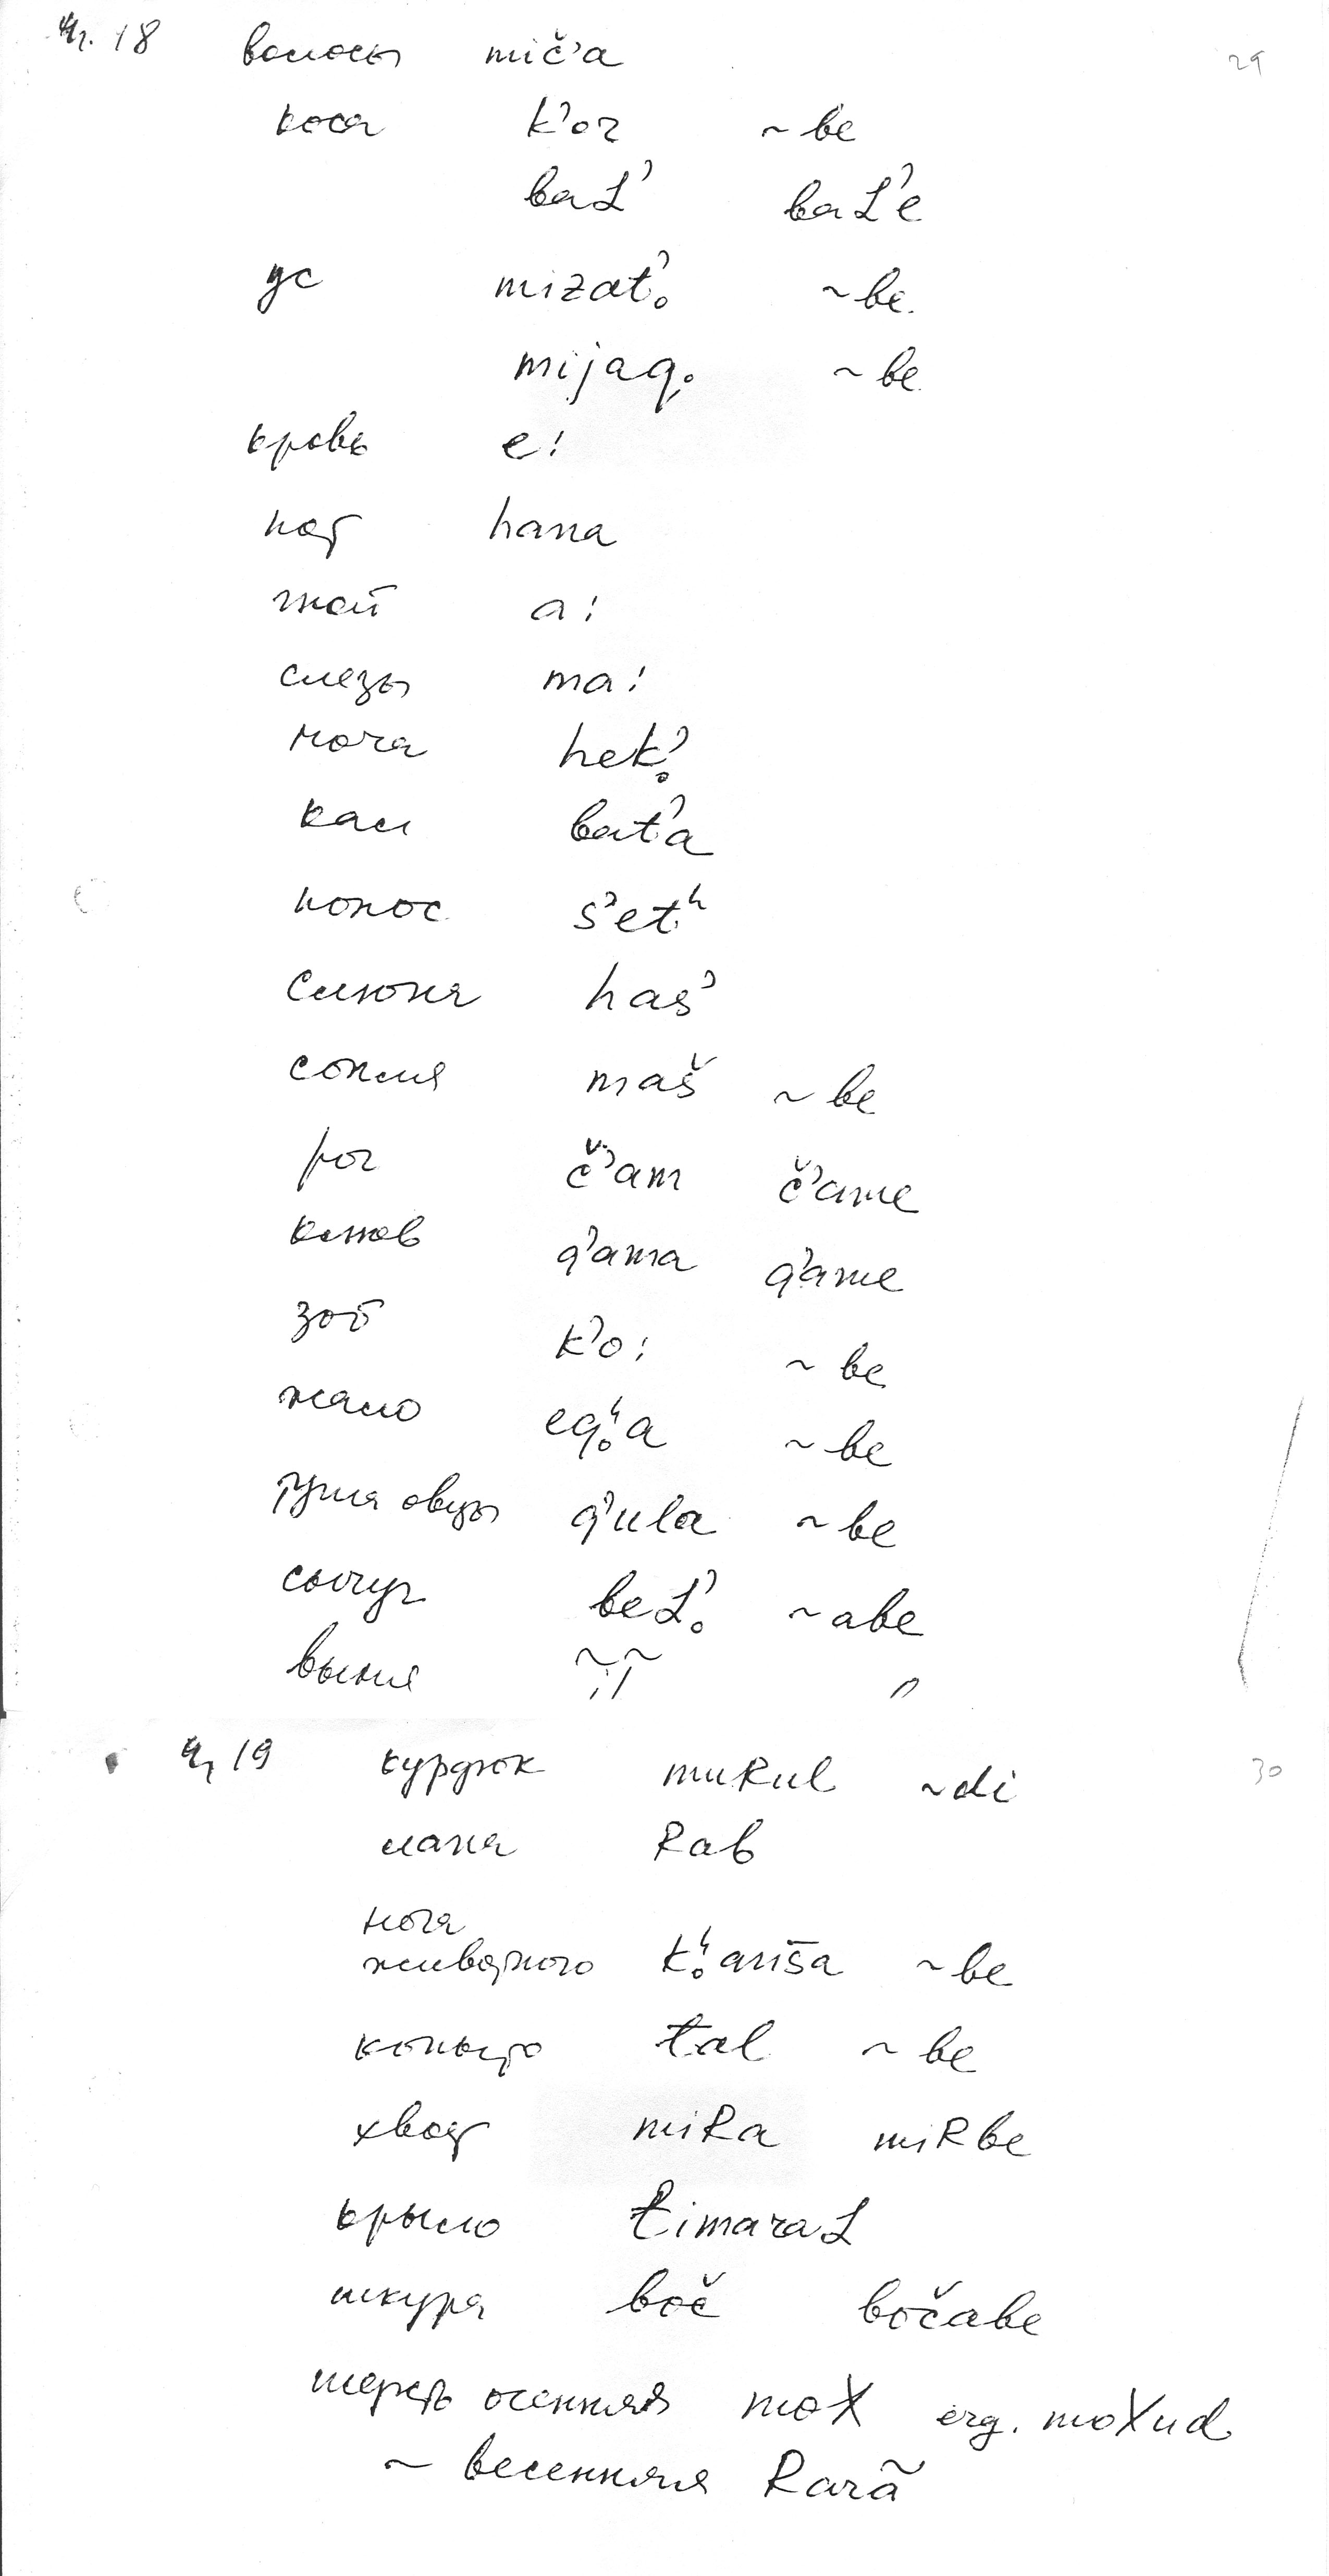 Чг. 18 волосы mič’a 29
коса k’oz ~be
baL’ baL’e
ус mizat’̥ ~be.
mijaq̥ ~be
кровь e:
пот hana
гной a:
слезы ma:
моча hek’̥
кал bat’a
понос s’etʰ
слюня has’
сопля maš ~be
рог č’am č’ame
клюв q’ama q’ame
зоб k’o: ~be
жало eq̥ʰa ~be
туша овцы q’ula ~be
сычуг beL’̥ ~abe
вымя
Чг 19 курдюк muRul ~di 30
лапа Rab
нога
животного k̥ʰaniša ~be
копыто tal ~be
хвост miRa miRbe
крыло timazaL
шкура boč bočabe
шерсть осенняя moX erg. moXud
~ весенняя Rarã